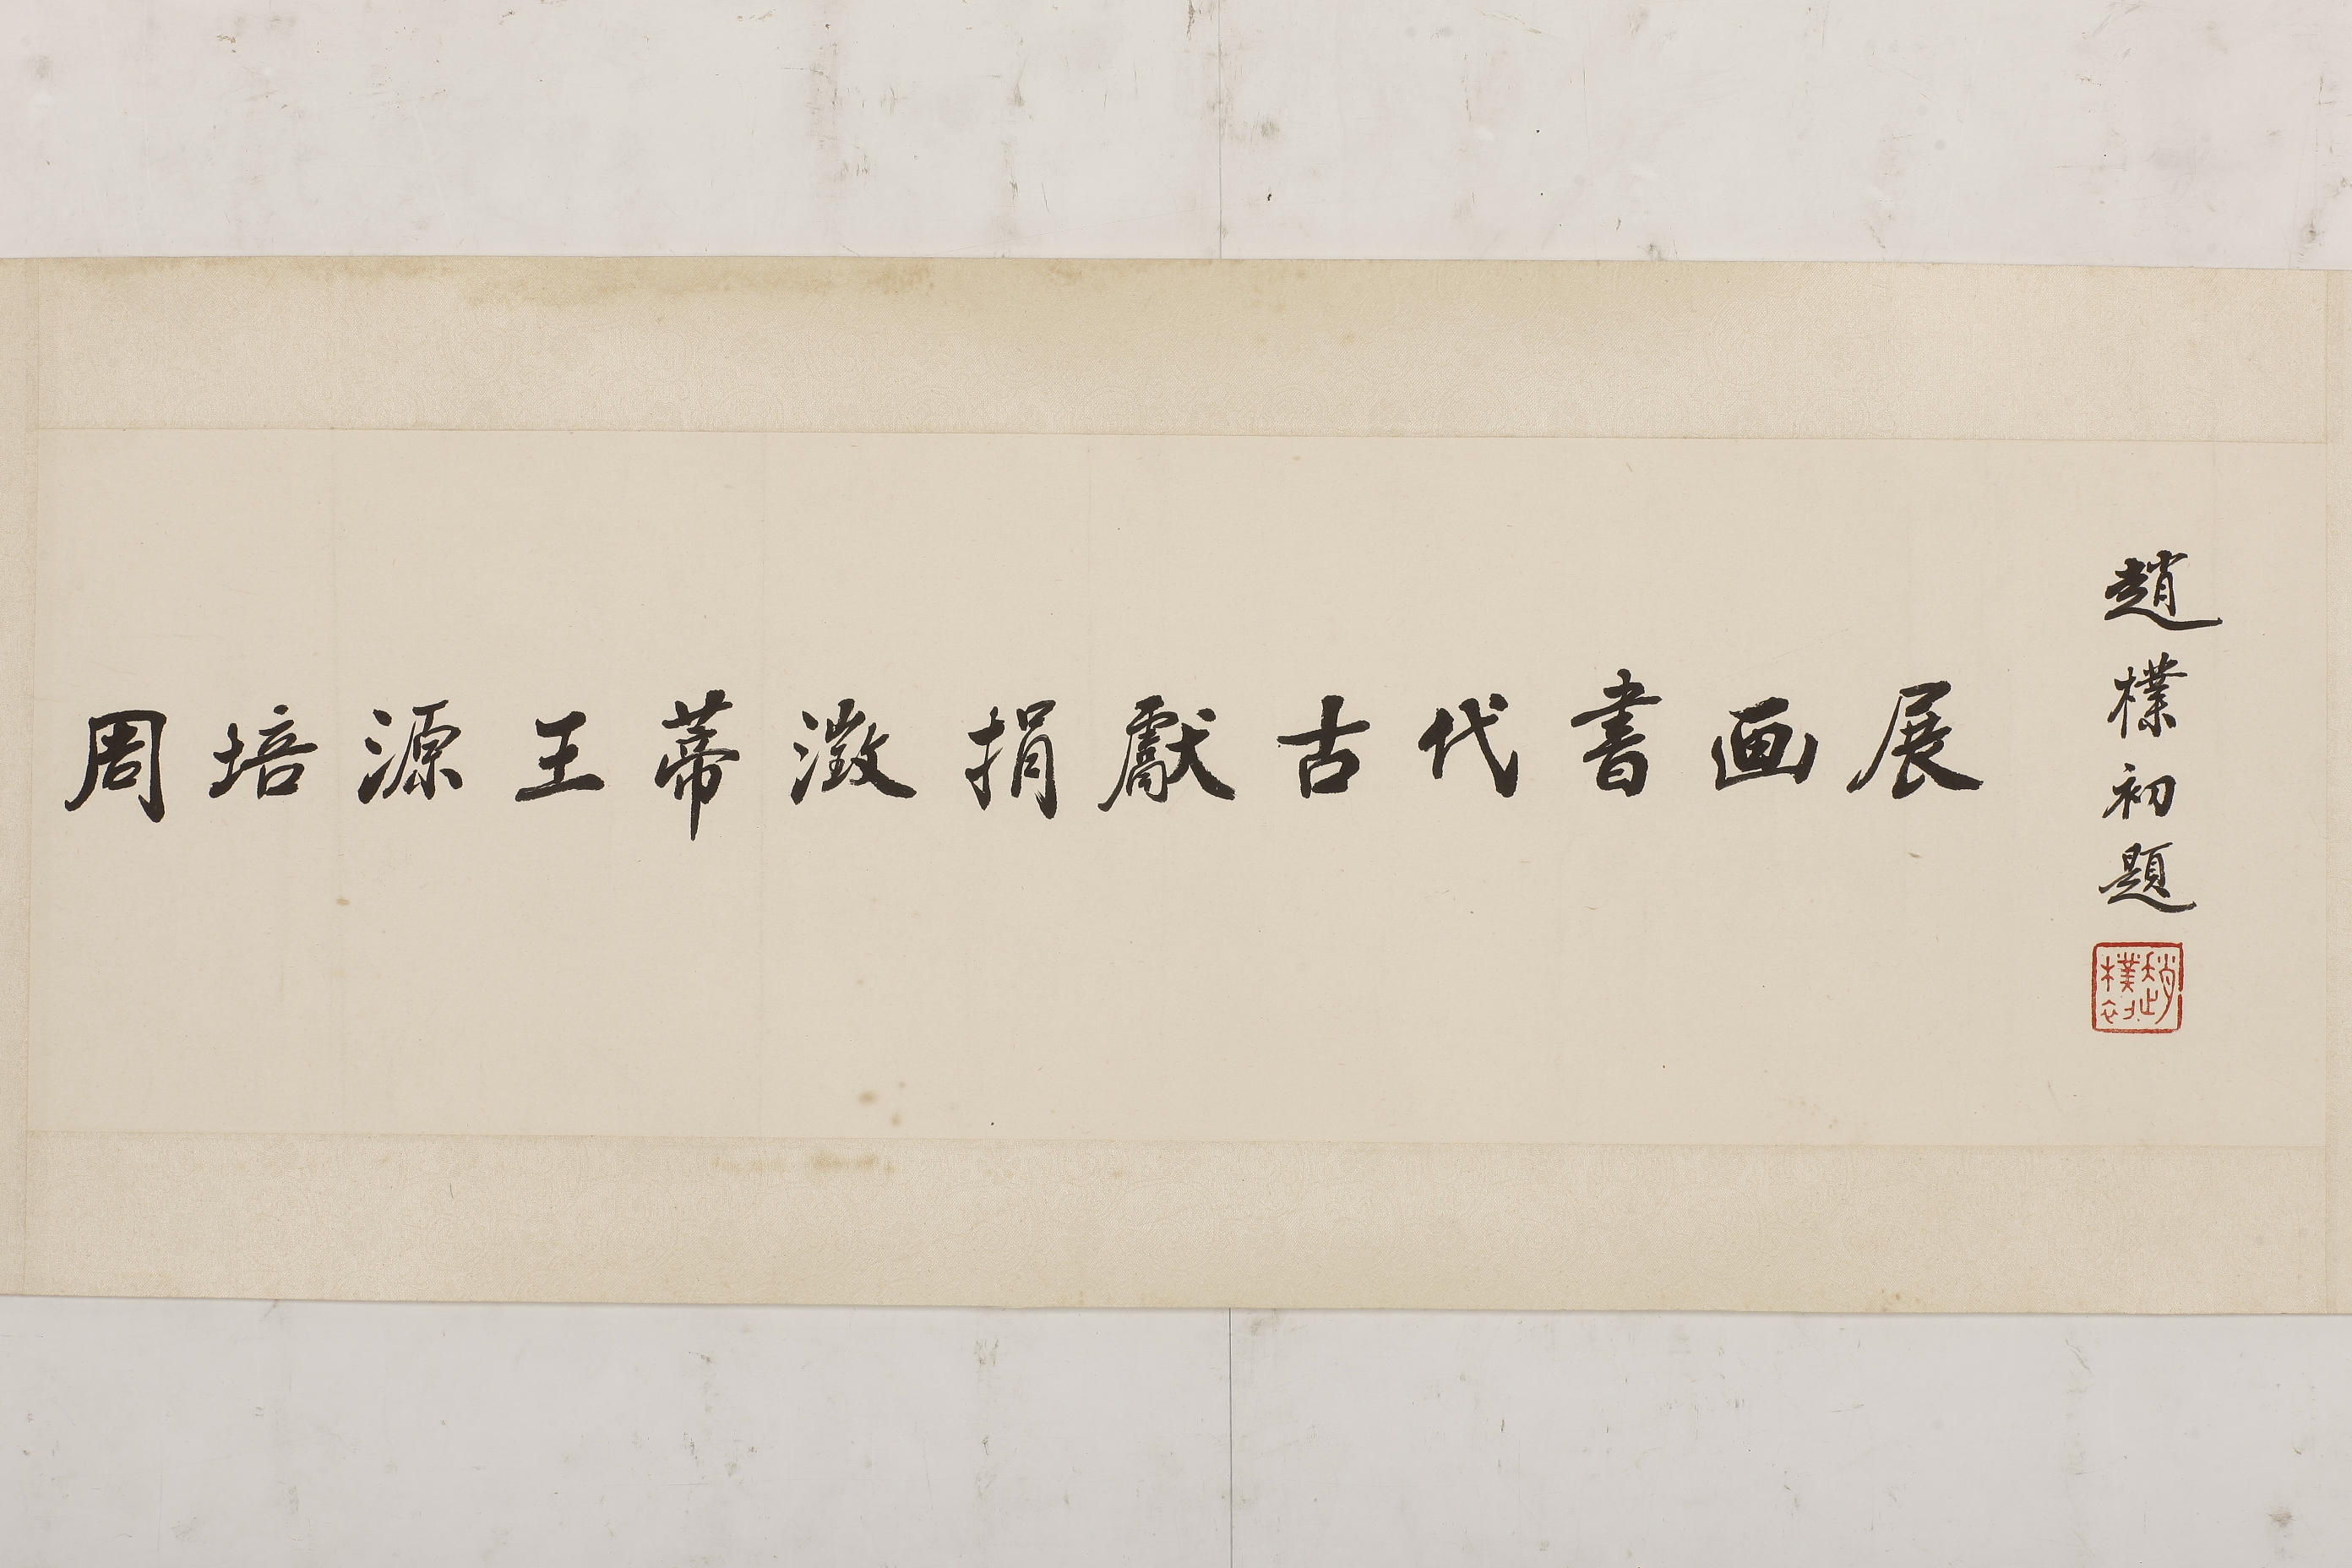 周培源王蒂澂捐獻古代書画展
趙樸初題
趙樸初